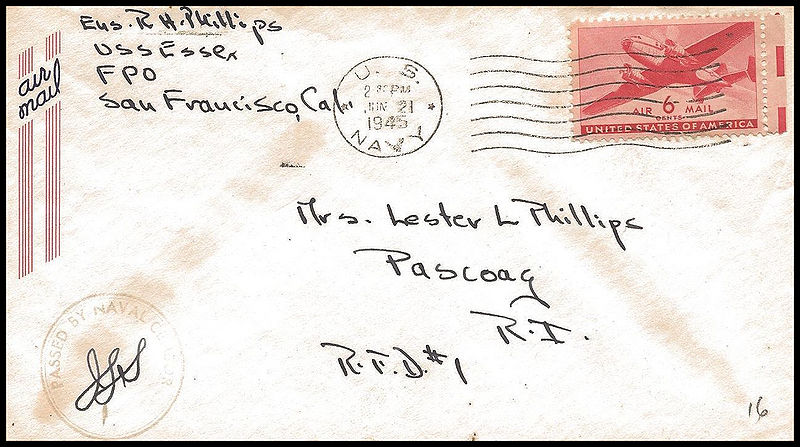 Ens. R. H. Phillips
USS Essex
FPO
San Francisco, Cal.
air
mail
U. S.
PM
JUN 21
1945
NAVY
AIR 6 MAIL
CENTS
UNITED STATES OF AMERICA
Mrs. Lester L Phillips
Pascoag
R.I.
R.F.D. #1
PASSED BY NAVAL CENSOR
16